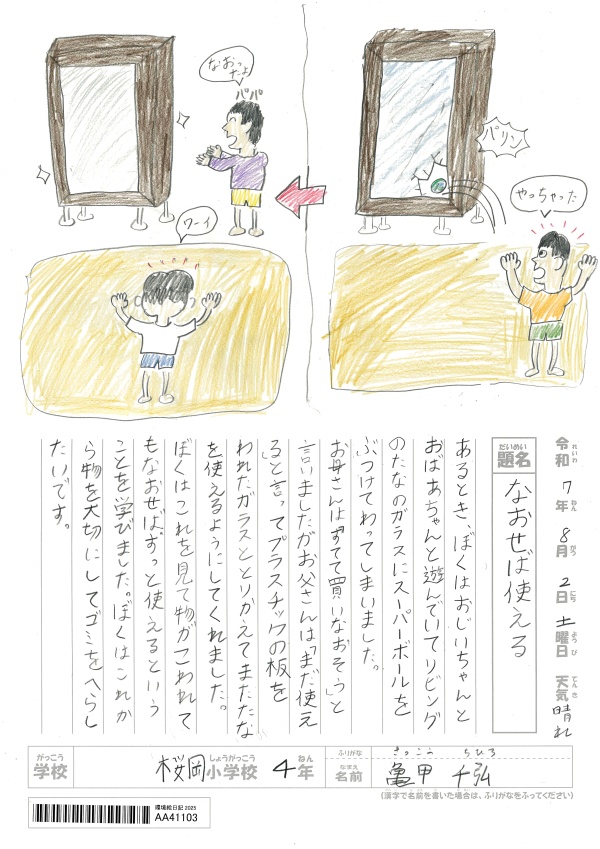 パリン
やっちゃった
なおったよ
パパ
ワーイ
令和7年8月2日土曜日 天気晴れ
れいわ ねん がつ にち ようび てんき
だいめい
題名
なおせば使える
あるとき、ぼくはおじいちゃんと
おばあちゃんと遊んでいてリビング
のたなのガラスにスーパーボールを
ぶつけてわってしまいました。
お母さんは「すてて買いなおそう」と
言いましたがお父さんは「まだ使え
る」と言ってプラスチックの板を
われたガラスととりかえてまたたな
を使えるようにしてくれました。
ぼくはこれを見て物がこわれて
もなおせばずっと使えるという
ことを学びました。ぼくはこれか
ら物を大切にしてゴミをへらし
たいです。
がっこう しょうがっこう ねん
学校 桜岡小学校 4年
ふりがな きっこう ちひろ
なまえ
名前 亀甲 千弘
(漢字で名前を書いた場合は、ふりがなをふってください)
環境絵日記 2025
AA41103